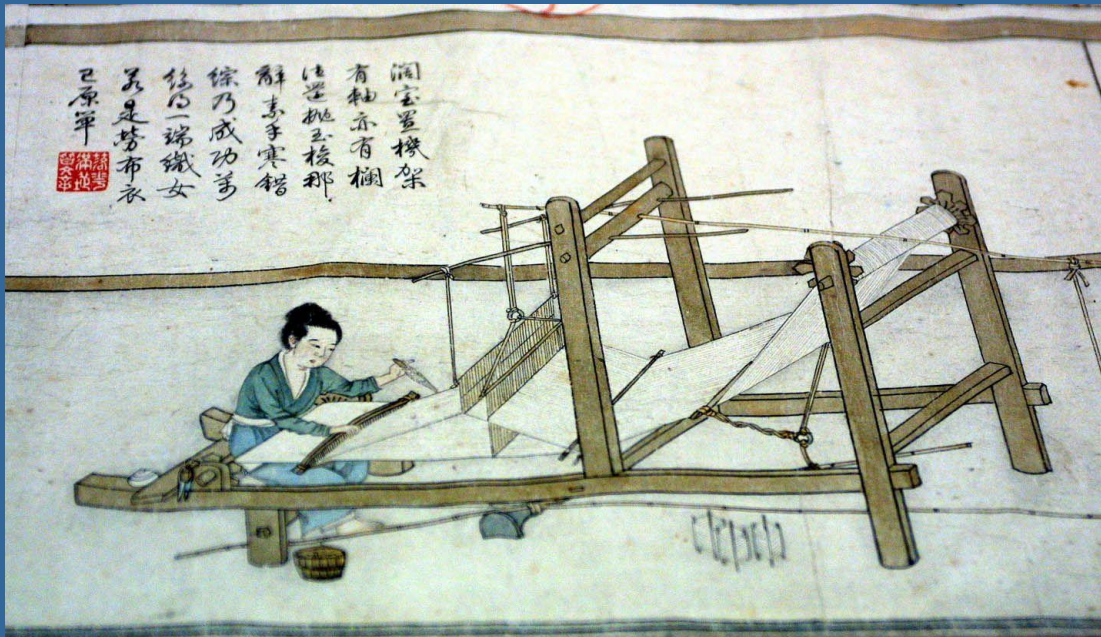 濶室置機架
有軸亦有欄
往還抛玉梭那
辭素手寒錯
綜乃成功萬
絲得一端織女
若是勞布衣
已原單